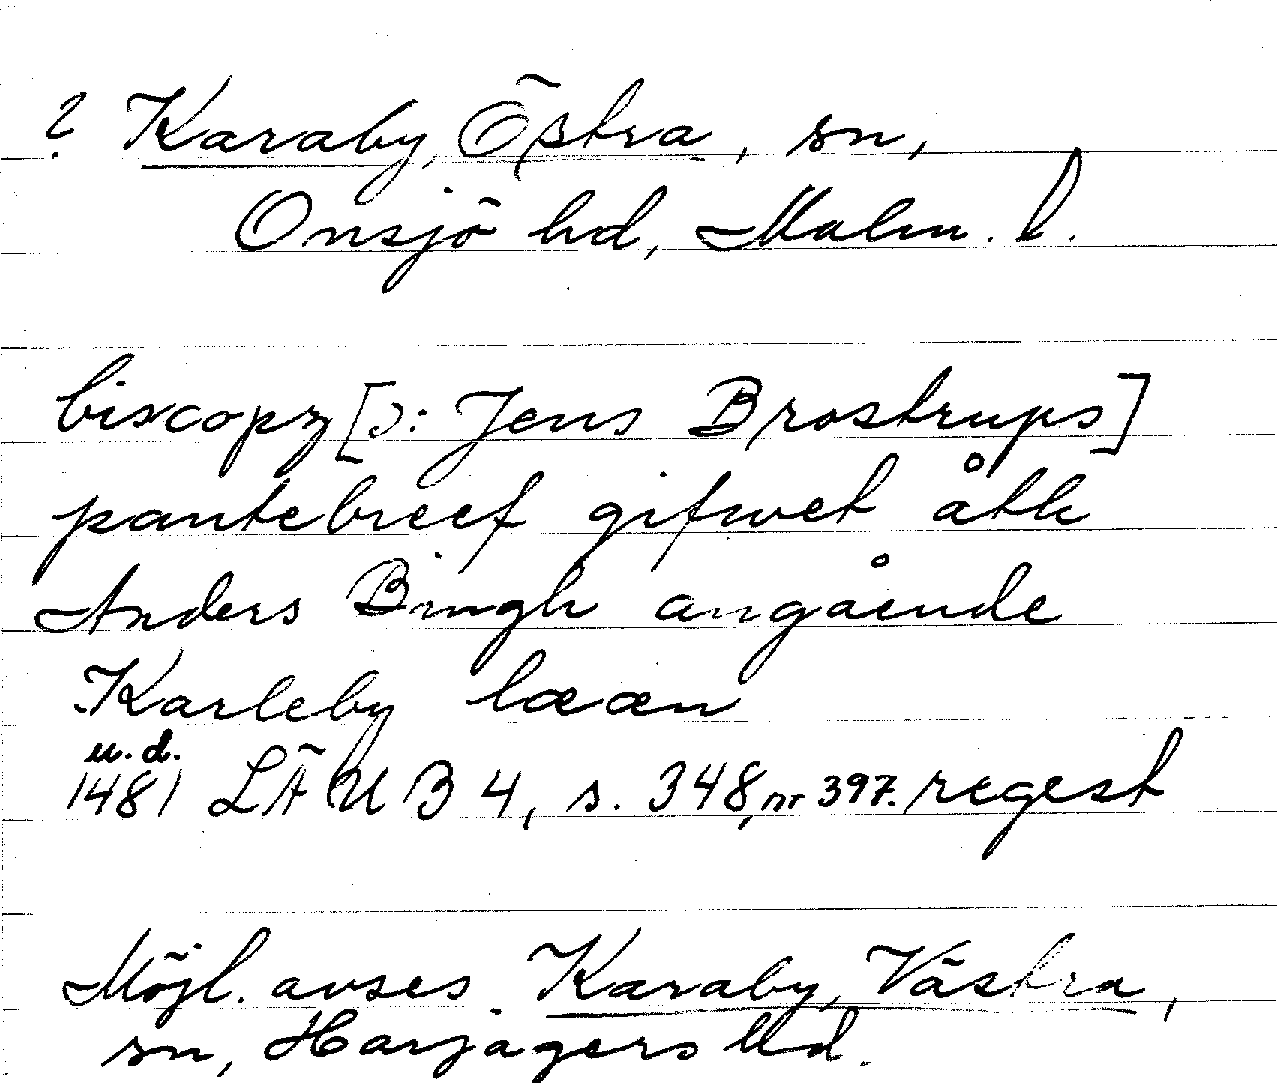 ? Karaby, Östra, sn,
Onsjö hd, Malm. l.
biscopz [ɔ: Jens Brostrups]
pantebreef gifwet åth
Anders Bingh angående
Karleby lææn
u. d.
1481 LÄUB 4, s. 348, nr 397. regest
Möjl. avses Karaby, Västra,
sn, Harjagers hd.